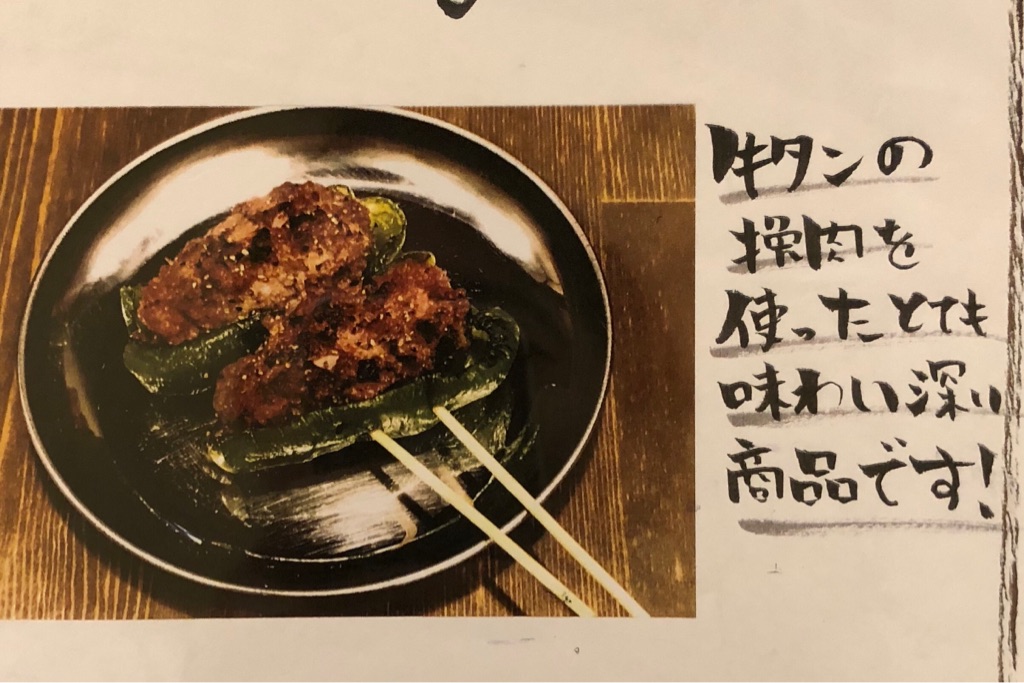 牛タンの
挽肉を
使ったとても
味わい深い
商品です!